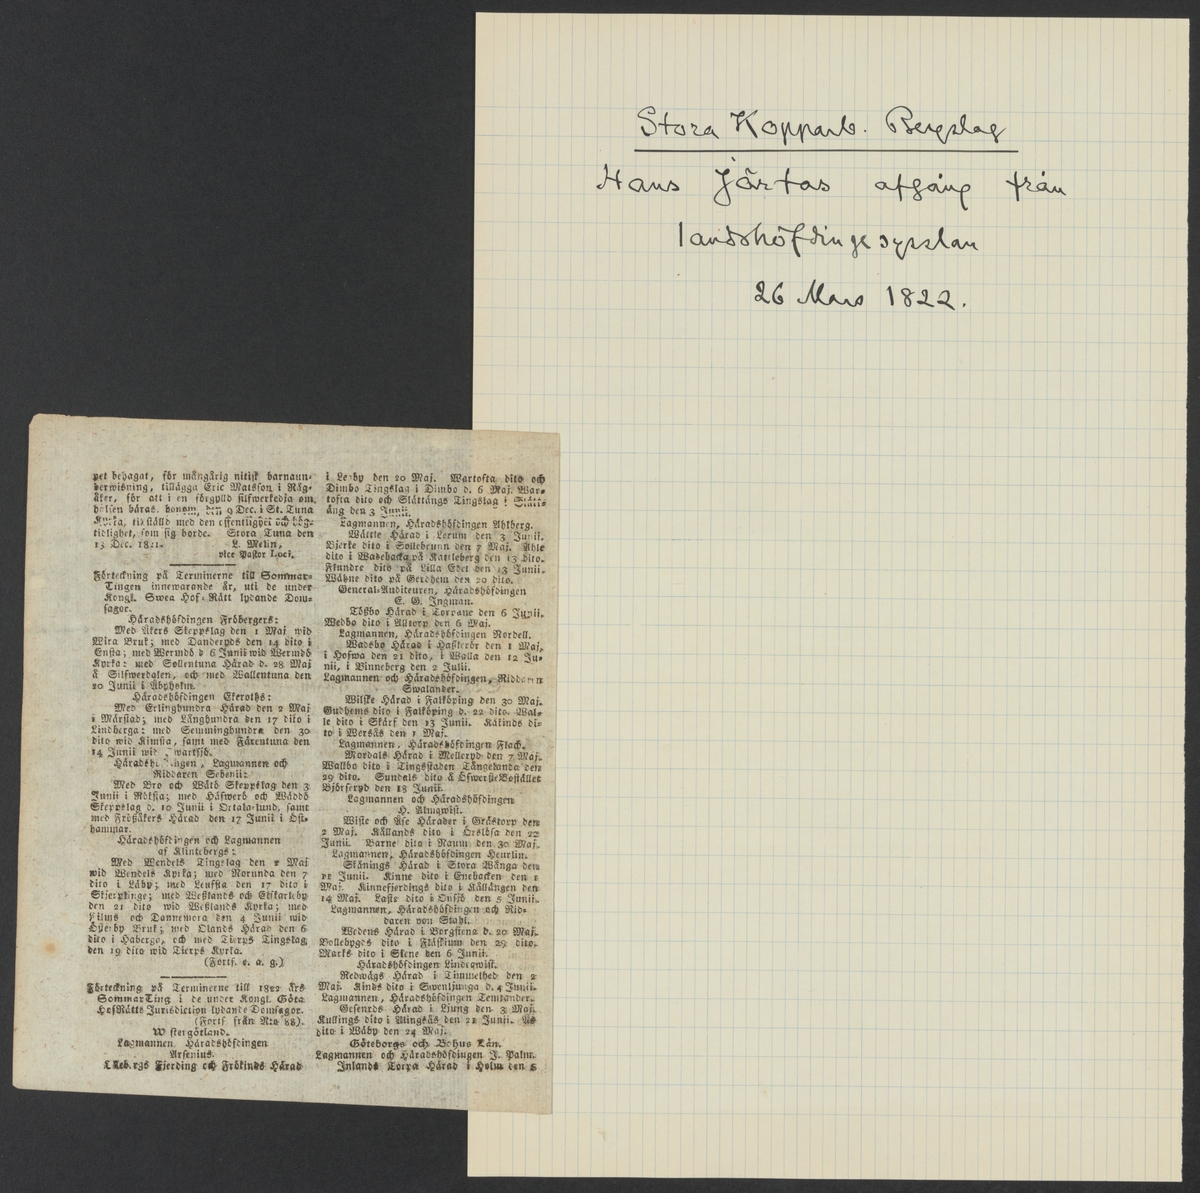 Stora Kopparb. Bergslag
Hans Järtas afgång från
landshöfdingesysslan
26 Mars 1822.
pet behagat, för mångårig nitisk barnaun-
derwisning, tillägga Eric Matsson i Råg-
åker, för att i en förgylld silfwerkedja om
halsen bäras, honom, den 9 Dec. i St. Tuna
Kyrka, tillställd med den offentlighet och hög-
tidlighet, som sig borde. Stora Tuna den
13 Dec. 1821. L. Melin,
vice Pastor Loci.
Förteckning på Terminerne till Sommar-
Tingen innewarande år, uti de under
Kongl. Swea Hof-Rätt lydande Dom-
sagor.
Häradshöfdingen Fröbergers:
Med Åkers Skeppslag den 1 Maj wid
Wira Bruk; med Danderyds den 14 dito i
Ensta; med Wermdö d. 6 Junii wid Wermdö
Kyrka: med Sollentuna Härad d. 28 Maj
å Silfwerdalen, och med Wallentuna den
20 Junii i Åbyholm.
Häradshöfdingen Ekeroths:
Med Erlinghundra Härad den 2 Maj
i Märstad; med Långhundra den 17 dito i
Lindberga: med Semminghundra den 30
dito wid Kimsta, samt med Färentuna den
14 Junii wid Swartsjö.
Häradshöfdingen, Lagmannen och
Riddaren Sebenii:
Med Bro och Wätö Skeppslag den 3
Junii i Röksta; med Häfwerö och Wäddö
Skeppslag d. 10 Junii i Ortala-lund, samt
med Frösåkers Härad den 17 Junii i Öst-
hammar.
Häradshöfdingen och Lagmannen
af Klintebergs:
Med Wendels Tingslag den 2 Maj
wid Wendels Kyrka; med Norunda den 7
dito i Läby; med Leufsta den 17 dito i
Skjerplinge; med Weßlands och Elfkarleby
den 21 dito wid Weßlands Kyrka; med
Films och Dannemora den 4 Junii wid
Österby Bruk; med Olands Härad den 6
dito i Haberga, och med Tierps Tingslag
den 19 dito wid Tierps Kyrka.
(Forts. e. a. g.)
Förteckning på Terminerne till 1822 års
SommarTing i de under Kongl. Göta
HofRätts Jurisdiction lydande Domsagor.
(Forts. från N:o 88).
Westergötland.
Lagmannen Häradshöfdingen
Arfenius.
Fjerding och Frökinds Härad
i Leaby den 20 Maj. Wartofta dito och
Dimbo Tingslag i Dimbo d. 6 Maj. War-
tofta dito och Slättängs Tingslag i Slätt-
äng den 3 Junii.
Lagmannen, Häradshöfdingen Ahlberg.
Wättle Härad i Lerum den 3 Junii.
Bjerke dito i Sollebrunn den 7 Maj. Ahle
dito i Wadebacka på Kattleberg den 13 dito.
Flundre dito på Lilla Edet den 13 Junii.
Wähne dito på Gerdhem den 20 dito.
General-Auditeuren, Häradshöfdingen
E. G. Ingman.
Tößbo Härad i Torpane den 6 Junii.
Wedbo dito i Alltorp den 6 Maj.
Lagmannen, Häradshöfdingen Nordell.
Wadsbo Härad i Haßlerör den 1 Maj,
i Hofwa den 21 dito, i Walla den 12 Ju-
nii, i Binneberg den 2 Julii.
Lagmannen och Häradshöfdingen, Riddaren
Swalander.
Wilske Härad i Falköping den 30 Maj.
Gudhems dito i Falköping d. 22 dito. Wal-
le dito i Skärf den 13 Junii. Kåkinds di-
to i Wersås den 1 Maj.
Lagmannen, Häradshöfdingen Flach.
Nordals Härad i Melleryd den 7 Maj.
Wallbo dito i Tingsstaden Tångelanda den
29 dito. Sundals dito å ÖfwersteBostället
Björseryd den 18 Junii.
Lagmannen och Häradshöfdingen
H. Almqwist.
Wiste och Åse Härader i Gråstorp den
2 Maj. Kållands dito i Örslösa den 22
Junii. Barne dito i Naum den 30 Maj.
Lagmannen, Häradshöfdingen Heurlin.
Skånings Härad i Stora Wånga den
12 Junii. Kinne dito i Enebacken den 1
Maj. Kinnefjerdings dito i Källängen den
14 Maj. Laske dito i Önsjö den 5 Junii.
Lagmannen, Häradshöfdingen och Rid-
daren von Stahl.
Wedens Härad i Borgstena d. 20 Maj.
Bollebygds dito i Fläskium den 29 dito.
Marks dito i Skene den 6 Junii.
Häradshöfdingen Lindeqwist.
Redwägs Härad i Timmelhed den 2
Maj. Kinds dito i Swenljunga d. 4 Junii.
Lagmannen, Häradshöfdingen Temtander.
Gesenes Härad i Ljung den 3 Maj.
Kullings dito i Alingsås den 21 Junii. Ås
dito i Wäby den 24 Maj.
Göteborgs och Bohus Län.
Lagmannen och Häradshöfdingen J. Palm.
Inlands Torpa Härad i Holm den 8